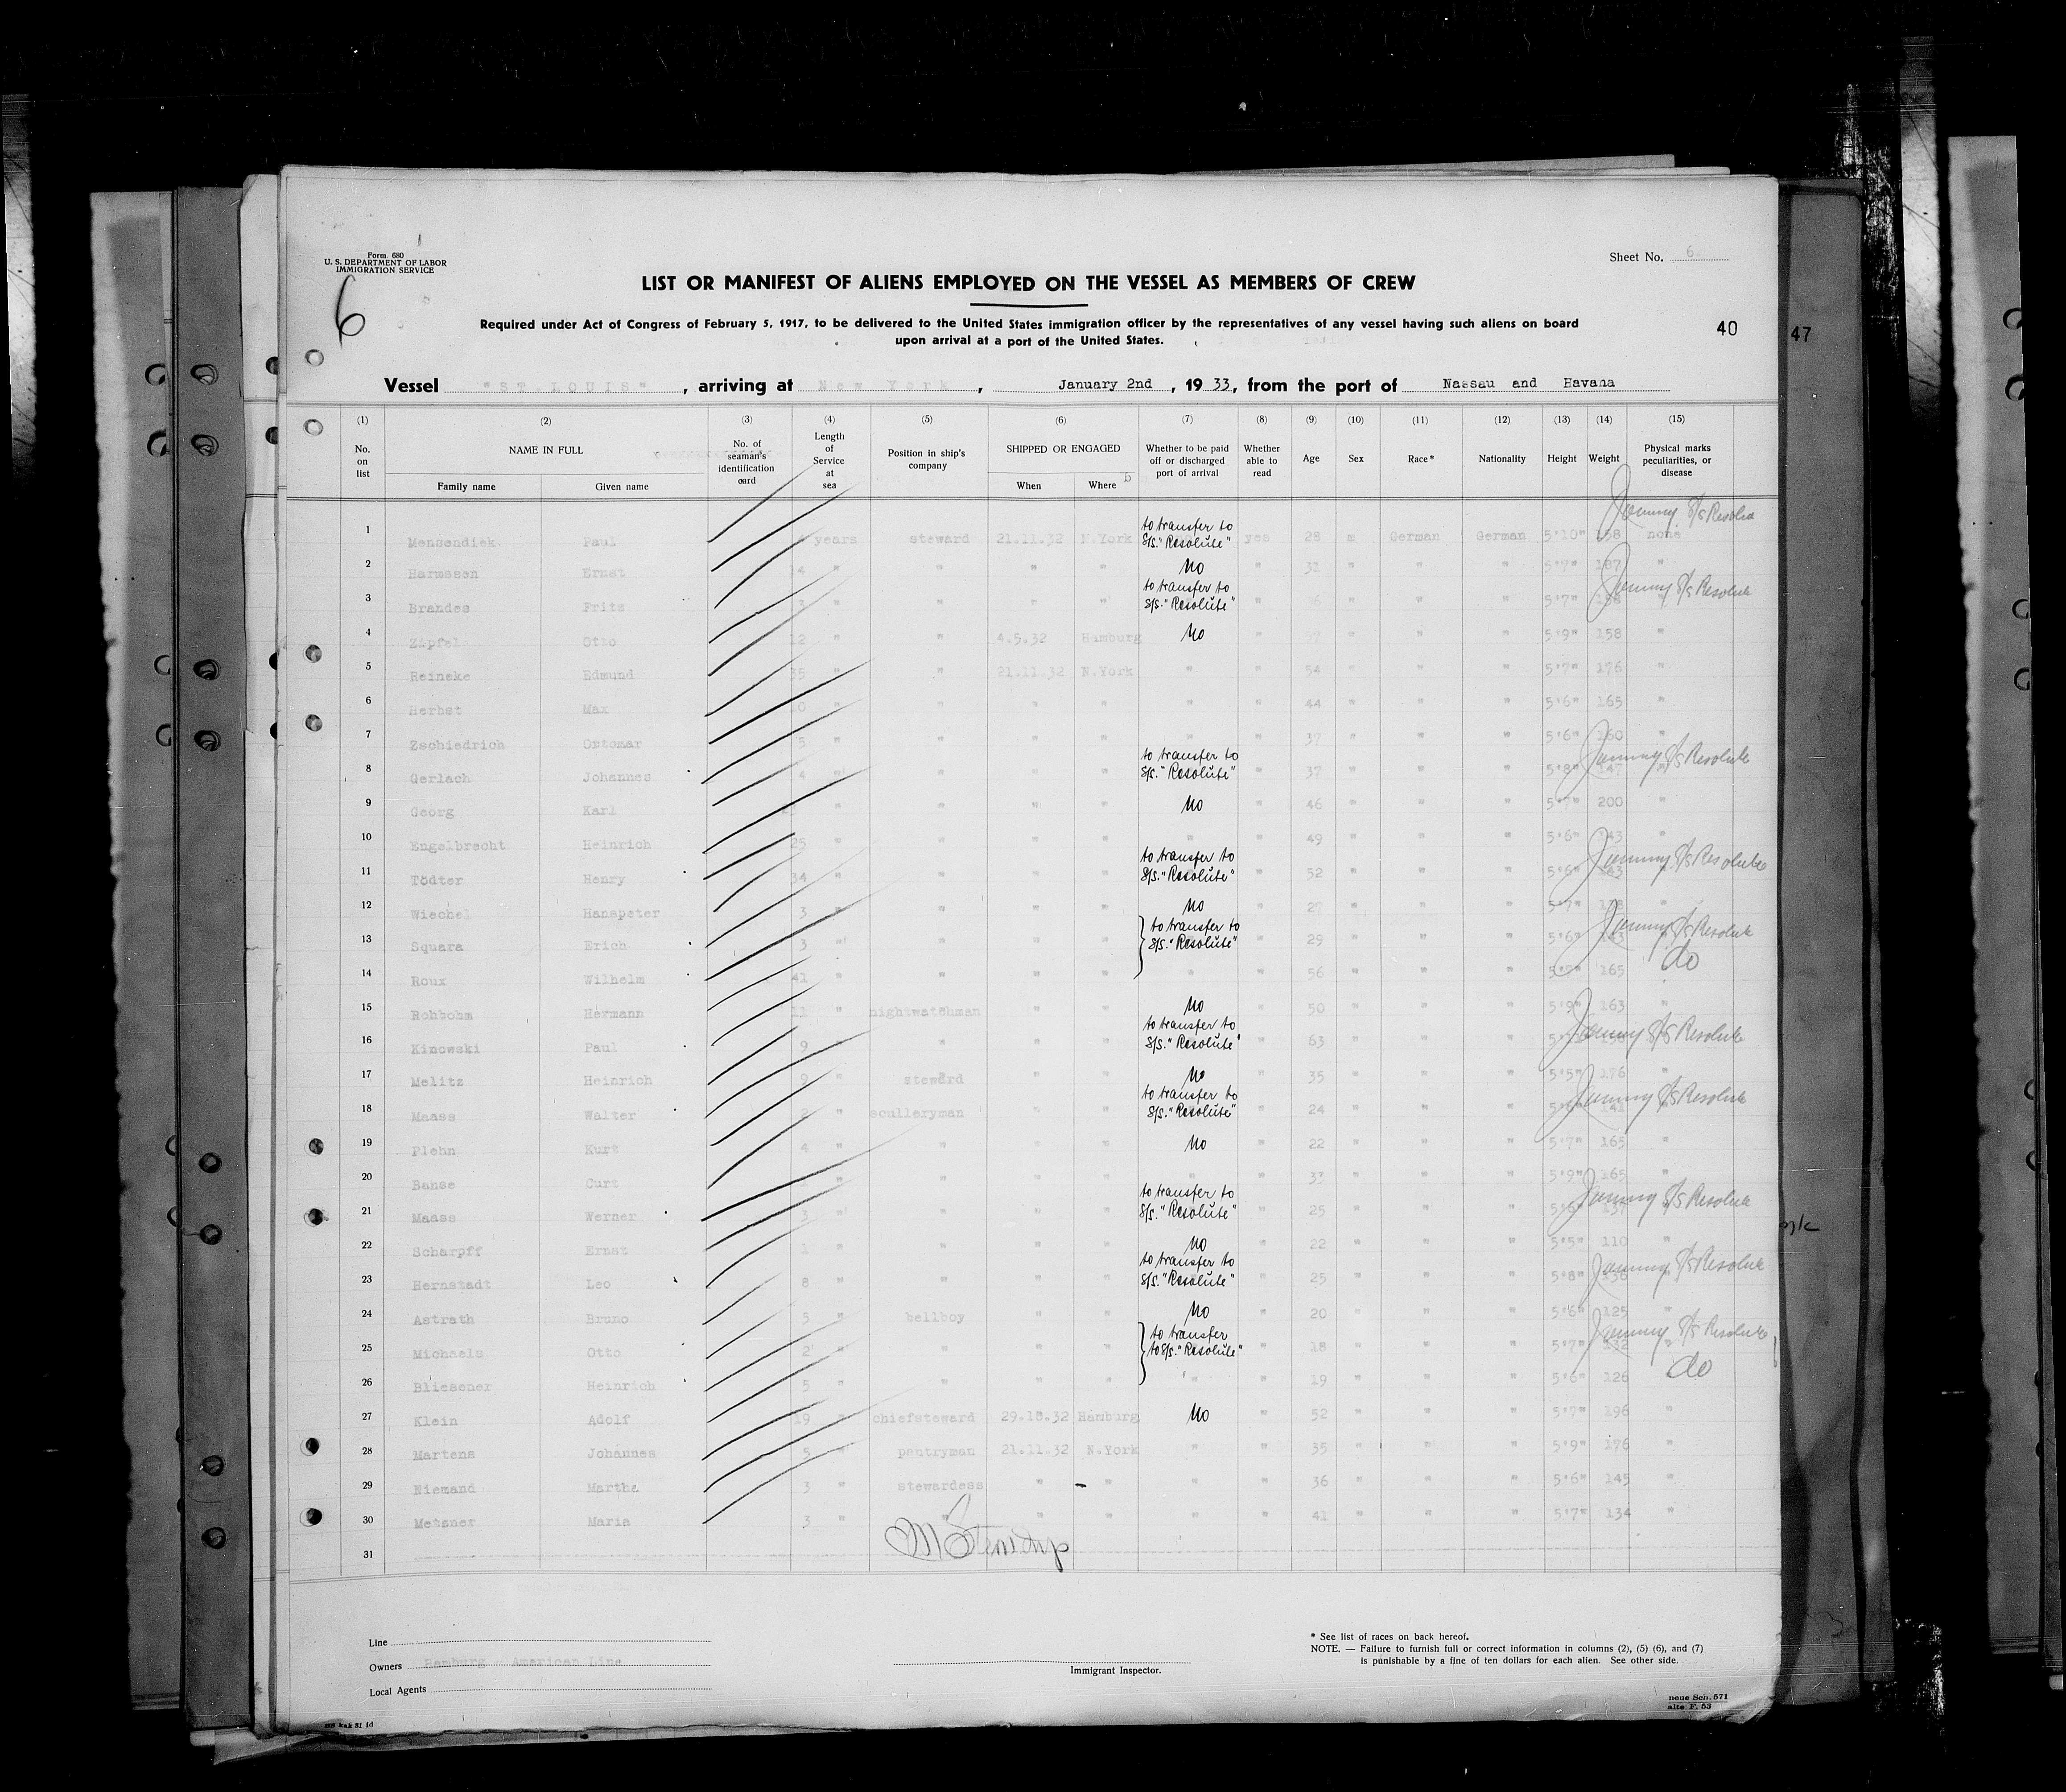 Form 680
U. S. DEPARTMENT OF LABOR
IMMIGRATION SERVICE
6
Sheet No. 6.
LIST OR MANIFEST OF ALIENS EMPLOYED ON THE VESSEL AS MEMBERS OF CREW
Required under Act of Congress of February 5, 1917, to be delivered to the United States immigration officer by the representatives of any vessel having such aliens on board
upon arrival at a port of the United States.
40
47
Vessel "ST. LOUIS", arriving at New York, January 2nd, 1933, from the port of Nassau and Havana
(1) (2) (3) (4) (5) (6) (7) (8) (9) (10) (11) (12) (13) (14) (15)
No. on list NAME IN FULL Family name Given name No. of seaman's identification card Length of Service at sea Position in ship's company SHIPPED OR ENGAGED When Where Whether to be paid off or discharged port of arrival Whether able to read Age Sex Race* Nationality Height Weight Physical marks peculiarities, or disease
1 Mensendiek Paul years steward 21.11.32 N.York to transfer to S/S. "Resolute" yes 28 m German German 5'10" 158 none
2 Harmssen Ernst 14 " " " " No " 32 " " " 5'7" 187 "
3 Brandes Fritz 3 " " " " to transfer to S/S. "Resolute" " " " " 5'7" S/S Resolute
4 Zipfel Otto 12 " " 4.5.32 Hamburg No " " " " 5'9" 158 "
5 Reineke Edmund 35 " " 21.11.32 N.York " " 54 " " " 5'7" 176 "
6 Herbst Max " " " " " " 44 " " " 5'6" 165 "
7 Zschiedrich Ottomar 5 " " " " " " 37 " " " 5'6" 160 "
8 Gerlach Johannes 4 " " " " to transfer to S/S. "Resolute" " 37 " " " 5'8" 147 S/S Resolute
9 Georg Karl " " " " No " 46 " " " 5'7" 200 "
10 Engelbrecht Heinrich 25 " " " " " " 49 " " " 5'6" 143 "
11 Tödter Henry 34 " " " " to transfer to S/S. "Resolute" " 52 " " " 5'6" S/S Resolute
12 Wiechel Hanspeter 3 " " " " No " 27 " " " 5'7" "
13 Squara Erich 3 " " " " to transfer to S/S. "Resolute" " 29 " " " 5'6" S/S Resolute
14 Roux Wilhelm 41 " " " " " " 56 " " " 165 do
15 Rohbohm Hermann 11 " nightwatchman " " No " 50 " " " 5'9" 163 "
16 Kinowski Paul 9 " " " " to transfer to S/S. "Resolute" " 63 " " " S/S Resolute
17 Melitz Heinrich 9 " steward " " No " 35 " " " 5'5" 176 "
18 Maass Walter 2 " sculleryman " " to transfer to S/S. "Resolute" " 24 " " " 141 S/S Resolute
19 Plehn Kurt 4 " " " " No " 22 " " " 5'7" 165 "
20 Banse Curt " " " " " " 37 " " " 5'9" 165 "
21 Maass Werner 3 " " " " to transfer to S/S. "Resolute" " 25 " " " 137 S/S Resolute
22 Scharpff Ernst 1 " " " " No " 22 " " " 5'5" 110 "
23 Hernstadt Leo 8 " " " " to transfer to S/S. "Resolute" " 25 " " " 5'8" S/S Resolute
24 Astrath Bruno 5 " bellboy " " No " 20 " " " 5'6" 125 "
25 Michaels Otto 2 " " " " to transfer to S/S. "Resolute" " 18 " " " 5'7" S/S Resolute
26 Bliesener Heinrich 5 " " " " " " 19 " " " 5'6" 126 do
27 Klein Adolf 19 " chiefsteward 29.10.32 Hamburg No " 52 " " " 5'7" 196 "
28 Martens Johannes 5 " pantryman 21.11.32 N.York " " 35 " " " 5'9" 176 "
29 Niemand Martha 3 " stewardess " " " " 36 " " " 5'6" 145 "
30 Metzner Maria 3 " " " " " " 41 " " " 5'7" 134 "
31
Line
Owners Hamburg - American Line
Local Agents
Immigrant Inspector.
* See list of races on back hereof.
NOTE. — Failure to furnish full or correct information in columns (2), (5) (6), and (7)
is punishable by a fine of ten dollars for each alien. See other side.
neue Sch. 571
alte F. 53